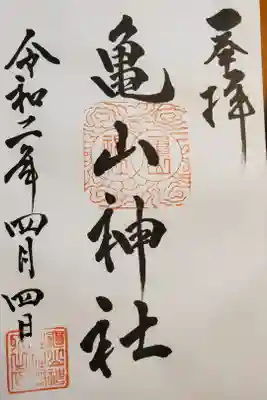 奉拝
亀山神社
令和二年四月四日